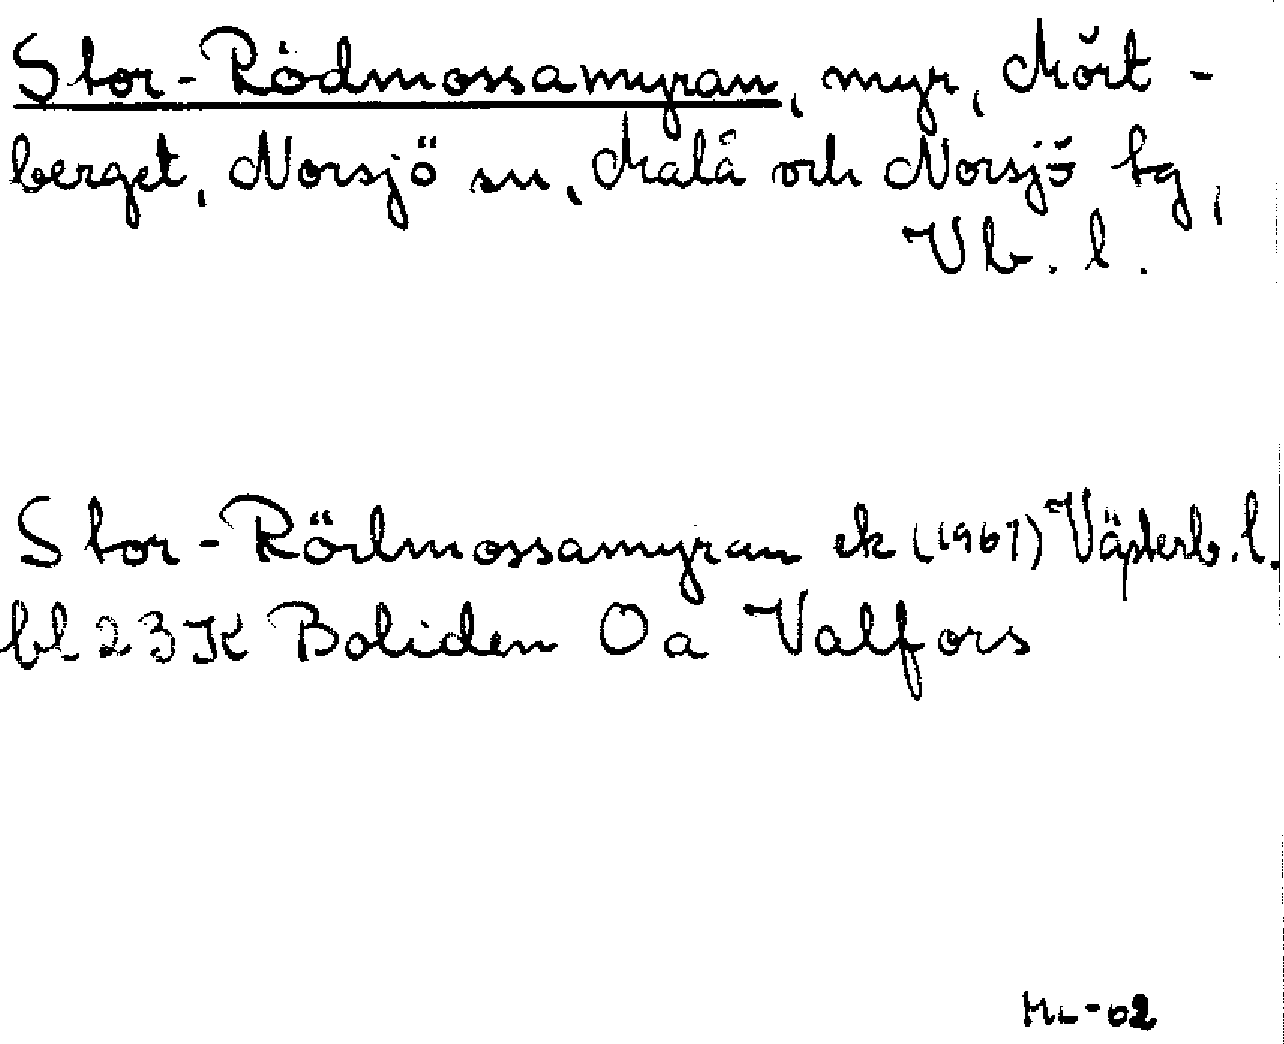 Stor-Rödmossamyran, myr, Mört-
berget, Norsjö sn, Malå och Norsjö tg,
Vb. l.
Stor-Rödmossamyran ek (1967) Västerb. l.
bl 23K Boliden 0a Valfors
ML-02